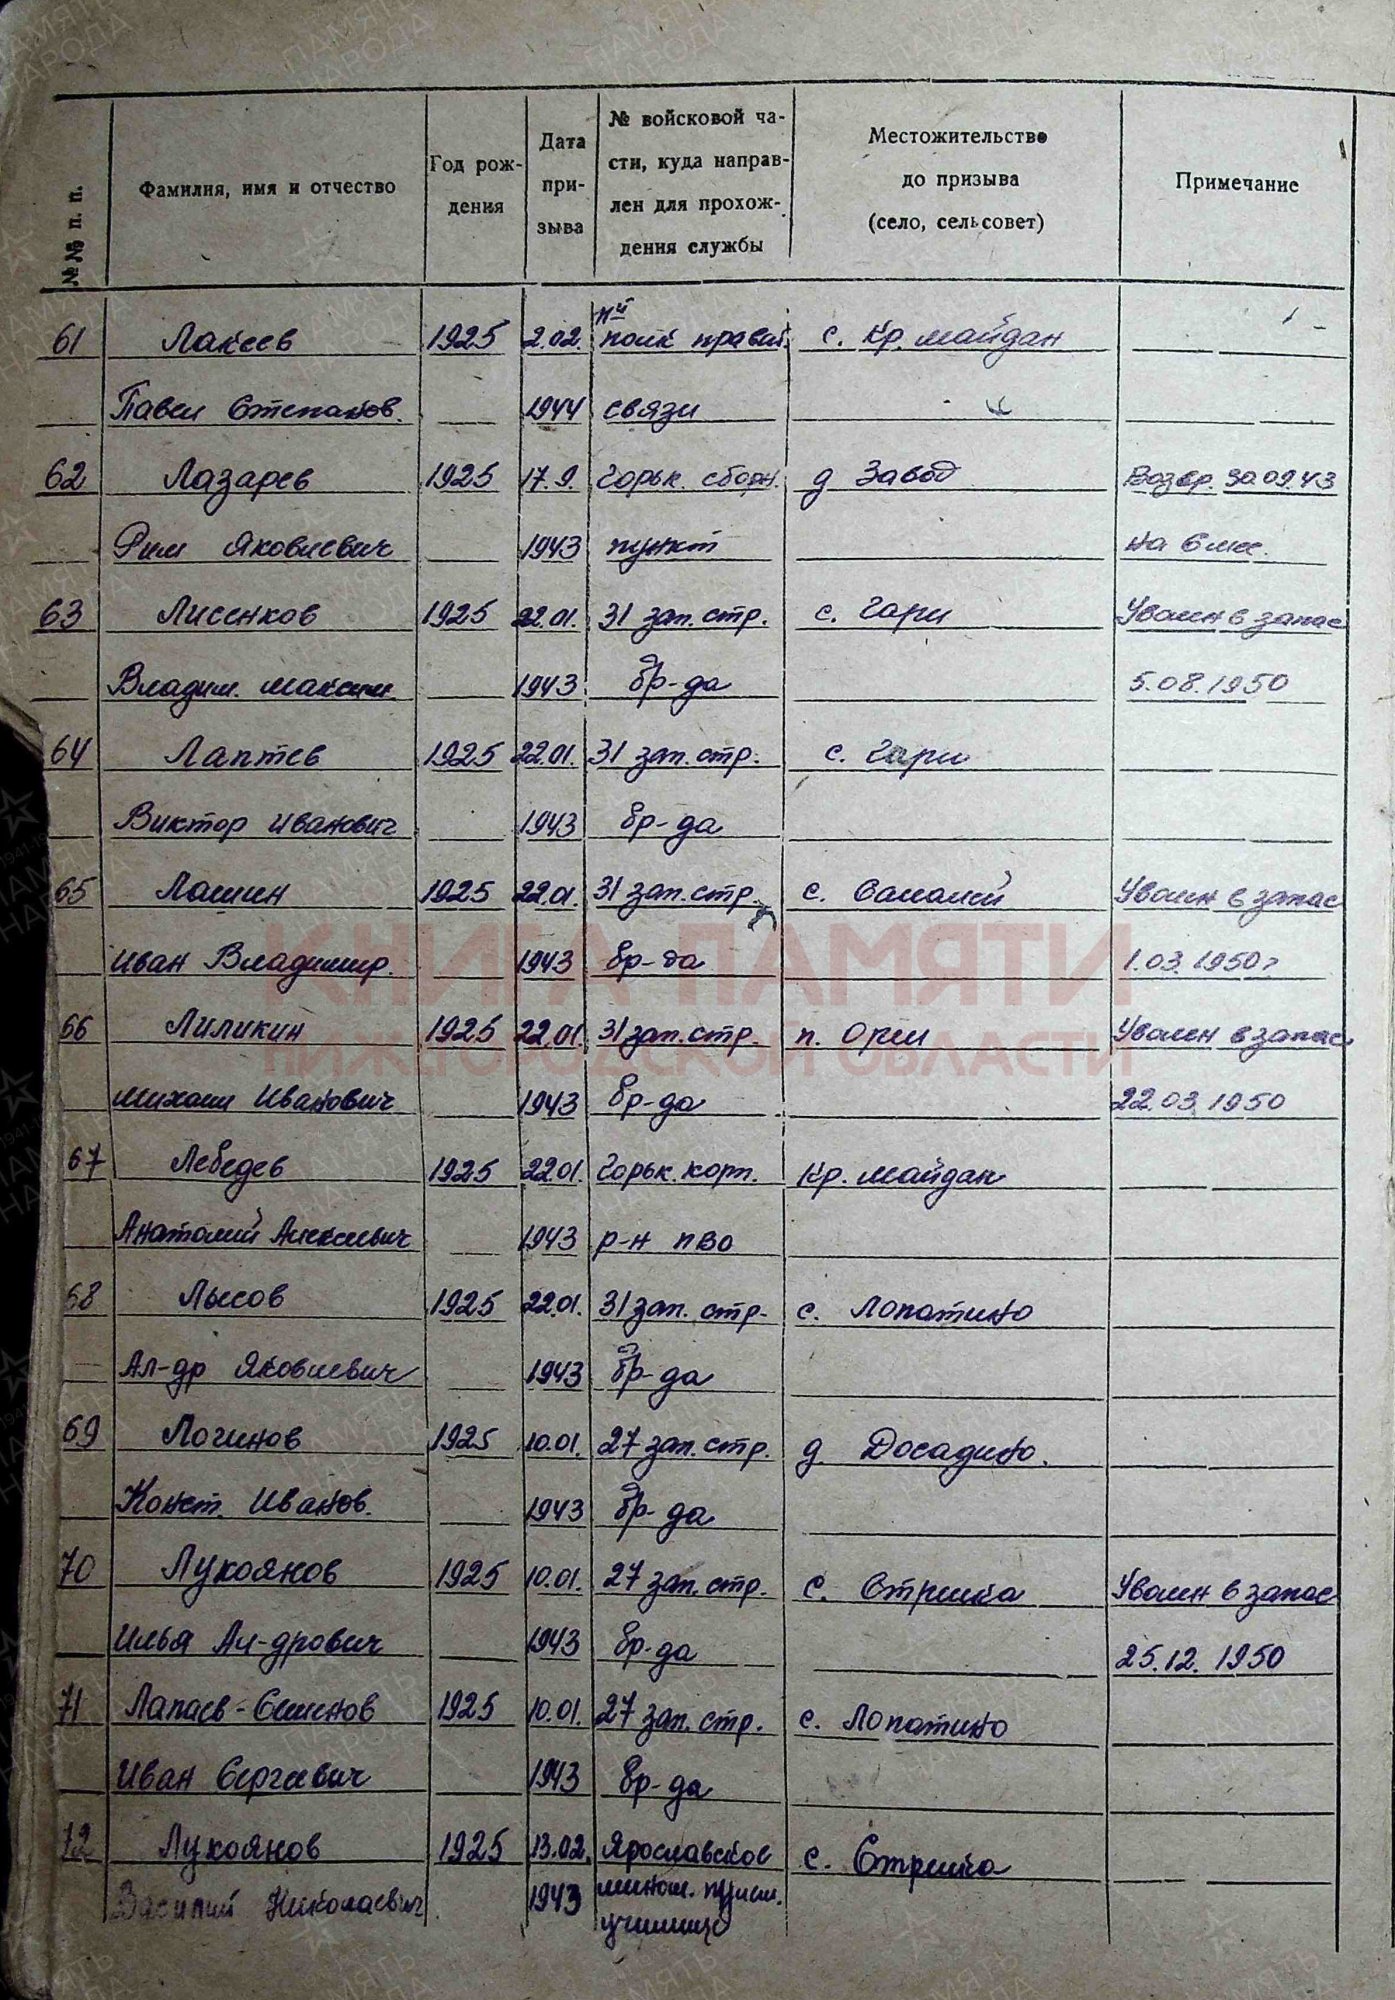 №№ п. п.
Фамилия, имя и отчество
Год рож-
дения
Дата
при-
зыва
№ войсковой ча-
сти, куда направ-
лен для прохож-
дения службы
Местожительство
до призыва
(село, сельсовет)
Примечание
61 Лакеев 1925 2.02. полк правит. с. Кр. майдан
Павел Степанов. 1944 связи
62 Лазарев 1925 17.9. Горьк. сборн. д Завод Возвр. 30.09.43
Рим Яковлевич 1943 пункт на 6 мес.
63 Лисенков 1925 22.01. 31 зап. стр. с. Гари Уволен в запас
Владим. Максим 1943 бр-да 5.08.1950
64 Лаптев 1925 22.01. 31 зап. стр. с. Гари
Виктор Иванович 1943 бр-да
65 Лашин 1925 22.01. 31 зап. стр. с. Саналей Уволен в запас
Иван Владимир. 1943 бр-да 1.03.1950г
КНИГА ПАМЯТИ
66 Лиликин 1925 22.01. 31 зап. стр. п. Орли Уволен в запас
НИЖЕГОРОДСКОЙ ОБЛАСТИ
Михаил Иванович 1943 бр-да 22.03.1950
67 Лебедев 1925 22.01. Горьк. корп. Кр. майдан
Анатолий Алексеевич 1943 р-н ПВО
68 Лысов 1925 22.01. 31 зап. стр. с. Лопатино
Ал-др Яковлевич 1943 бр-да
69 Логинов 1925 10.01. 27 зап. стр. д Досадино.
Конст. Иванов. 1943 бр-да
70 Лукоянов 1925 10.01. 27 зап. стр. с. Стрелка Уволен в запас
Илья Ал-дрович 1943 бр-да 25.12.1950
71 Лапаев-Семенов 1925 10.01. 27 зап. стр. с. Лопатино
Иван Сергеевич 1943 бр-да
72 Лукоянов 1925 13.02. Ярославское с. Стрелка
Василий Николаевич 1943 мином. пулем.
училище